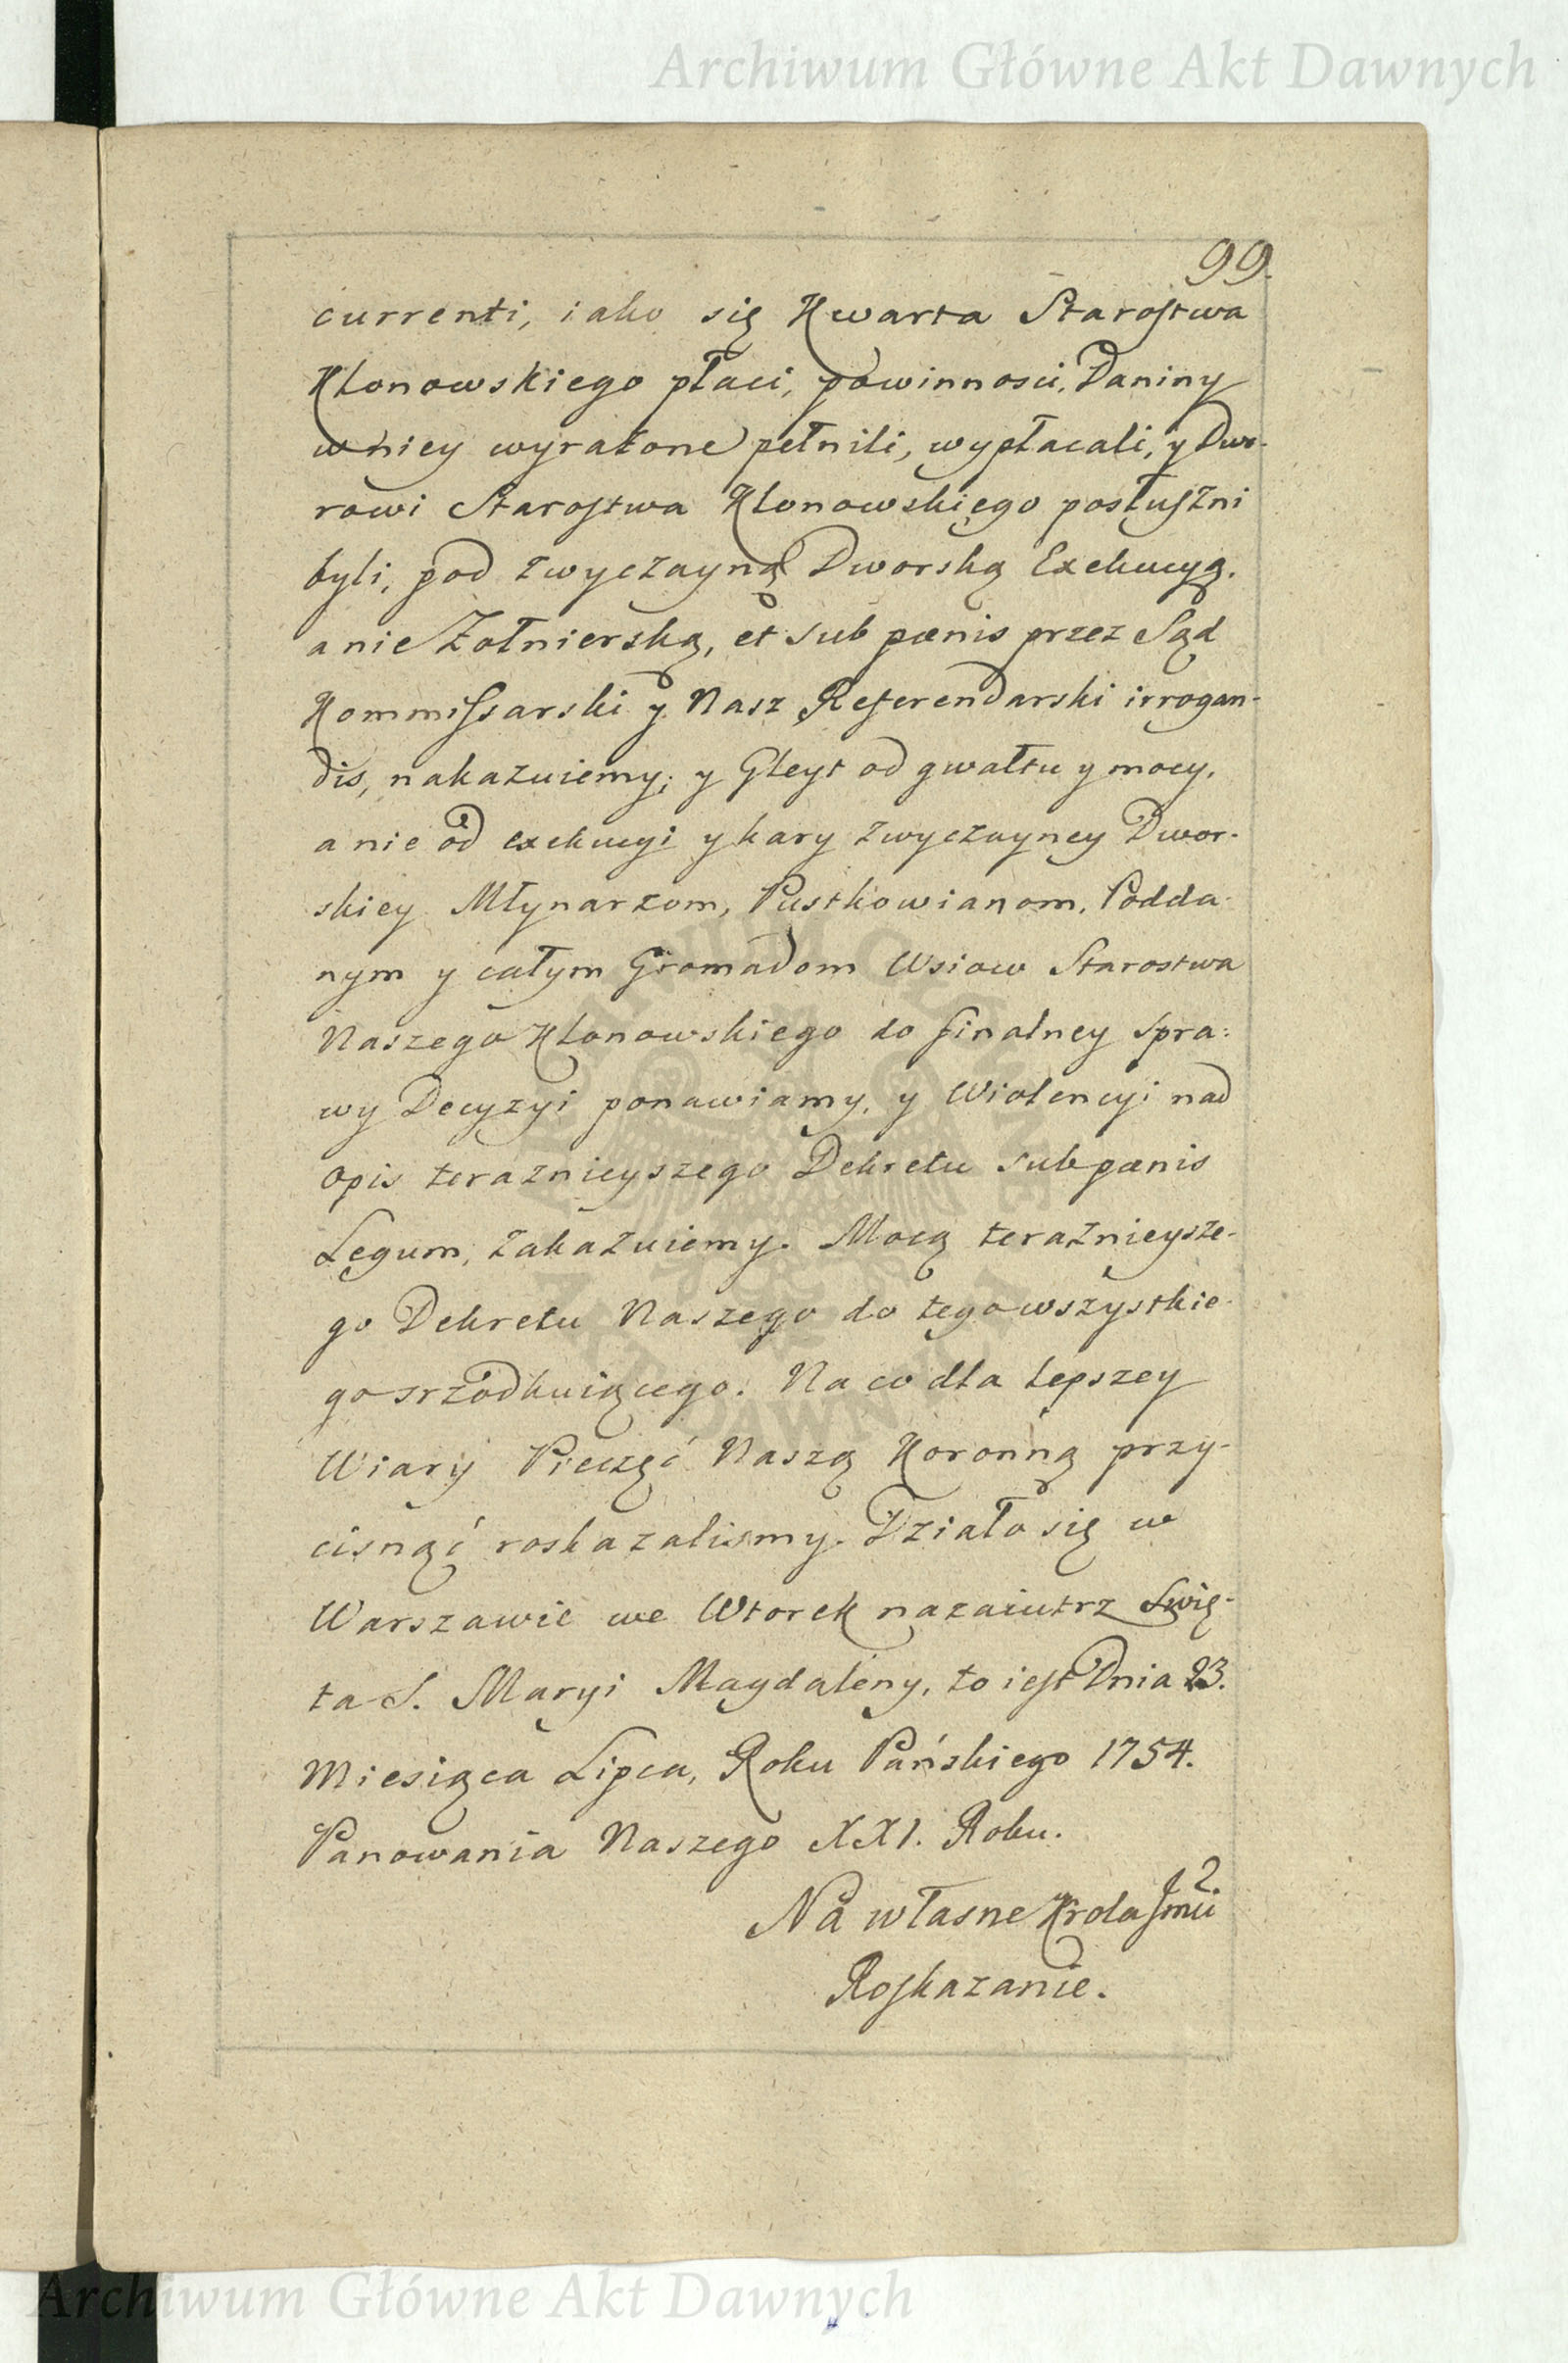 Archiwum Główne Akt Dawnych
99.
currenti, iako się Kwarta Starostwa
Klonowskiego płaci, powinnosci, Daniny
w niey wyrażone pełnili, wypłacali, y Dwo-
rowi Starostwa Klonowskiego posłuszni
byli, pod zwyczayną Dworską Exekucyą.
a nie Żołnierską, et sub pænis przez Sąd
Kommissarski y Nasz Referendarski irrogan-
dis, nakazuiemy; y Gleyt od gwałtu y mocy,
a nie od exekucyi y kary zwyczayney Dwor-
skiey Młynarzom, Pustkowianom, Podda-
nym y całym Gromadom Wsiow Starostwa
Naszego Klonowskiego do finalney Spra:
wy Decyzyi ponawiamy, y Wiolencyi nad
opis teraznieyszego Dekretu sub pænis
Legum, zakazuiemy. Mocą teraznieysze-
go Dekretu Naszego do tego wszystkie-
go srzodkuiącego. Na co dla lepszey
Wiary Pieczęć Naszą Koronną przy-
cisnąć roskazalismy. Działo się w
Warszawie we Wtorek nazaiutrz Swię-
ta S. Maryi Magdaleny, to iest Dnia 23.
Miesiąca Lipca, Roku Pańskiego 1754.
Panowania Naszego XXI. Roku.
Na własne Krola Jmci
Roskazanie.
Archiwum Główne Akt Dawnych